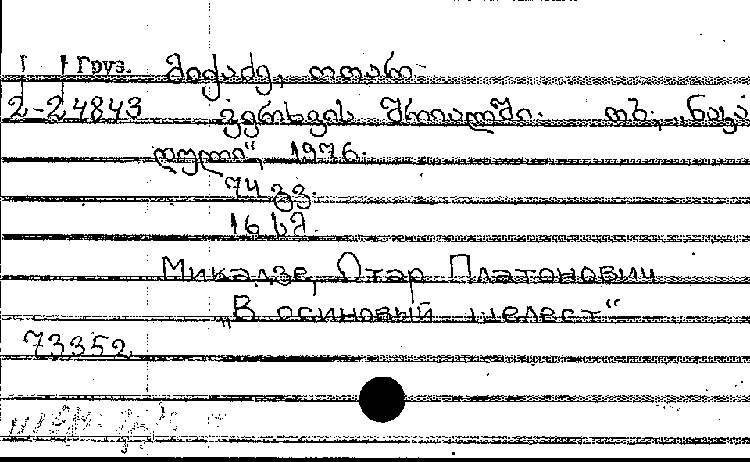 Груз. მიქაძე, ოთარ.
2-24843 ვერხვის შრიალში. თბ., „ნაკა
დული“, 1976.
74 გვ.
16 სმ.
Микадзе, Отар Платонович
„В осиновый шелест“
73352